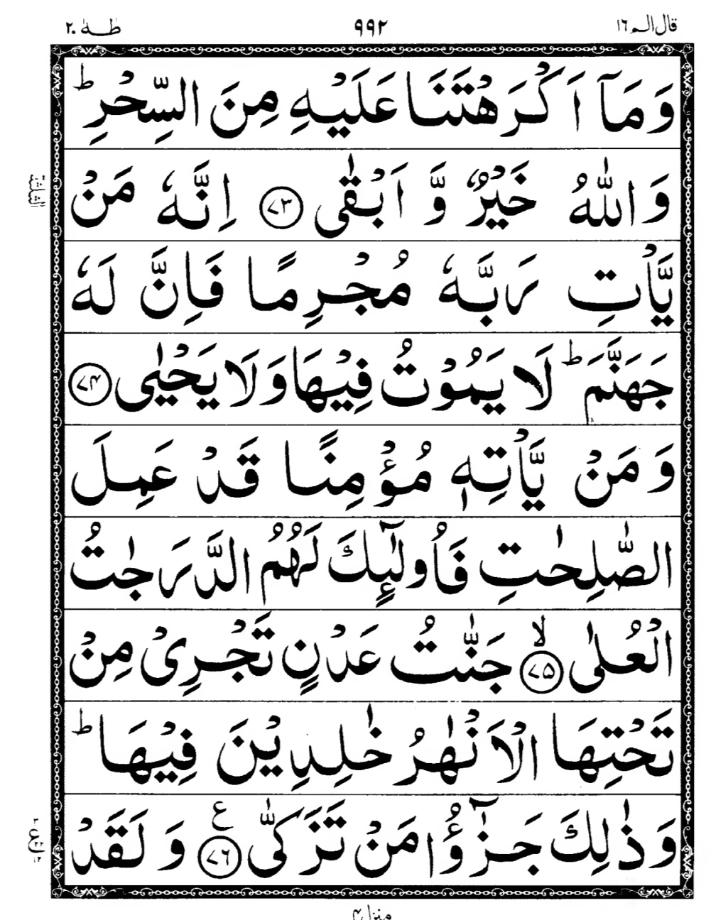 قال الم ١٦ ٩٩٢ طٰهٰ ٢٠
وَمَاۤ اَكْرَهْتَنَا عَلَيْهِ مِنَ السِّحْرِ ؕ
وَاللّٰهُ خَيْرٌ وَّ اَبْقٰى ﴿۷۳﴾ اِنَّهٗ مَنْ
يَّاْتِ رَبَّهٗ مُجْرِمًا فَاِنَّ لَهٗ
جَهَنَّمَ ؕ لَا يَمُوْتُ فِيْهَا وَلَا يَحْيٰى ﴿۷۴﴾
وَمَنْ يَّاْتِهٖ مُؤْمِنًا قَدْ عَمِلَ
الصّٰلِحٰتِ فَاُولٰٓئِكَ لَهُمُ الدَّرَجٰتُ
الْعُلٰى ﴿۷۵﴾ ۙ جَنّٰتُ عَدْنٍ تَجْرِىْ مِنْ
تَحْتِهَا الْاَنْهٰرُ خٰلِدِيْنَ فِيْهَا ؕ
وَذٰلِكَ جَزٰٓؤُا مَنْ تَزَكّٰى ﴿۷۶﴾ ع وَلَقَدْ
الثلثة
ع
منزل ۴